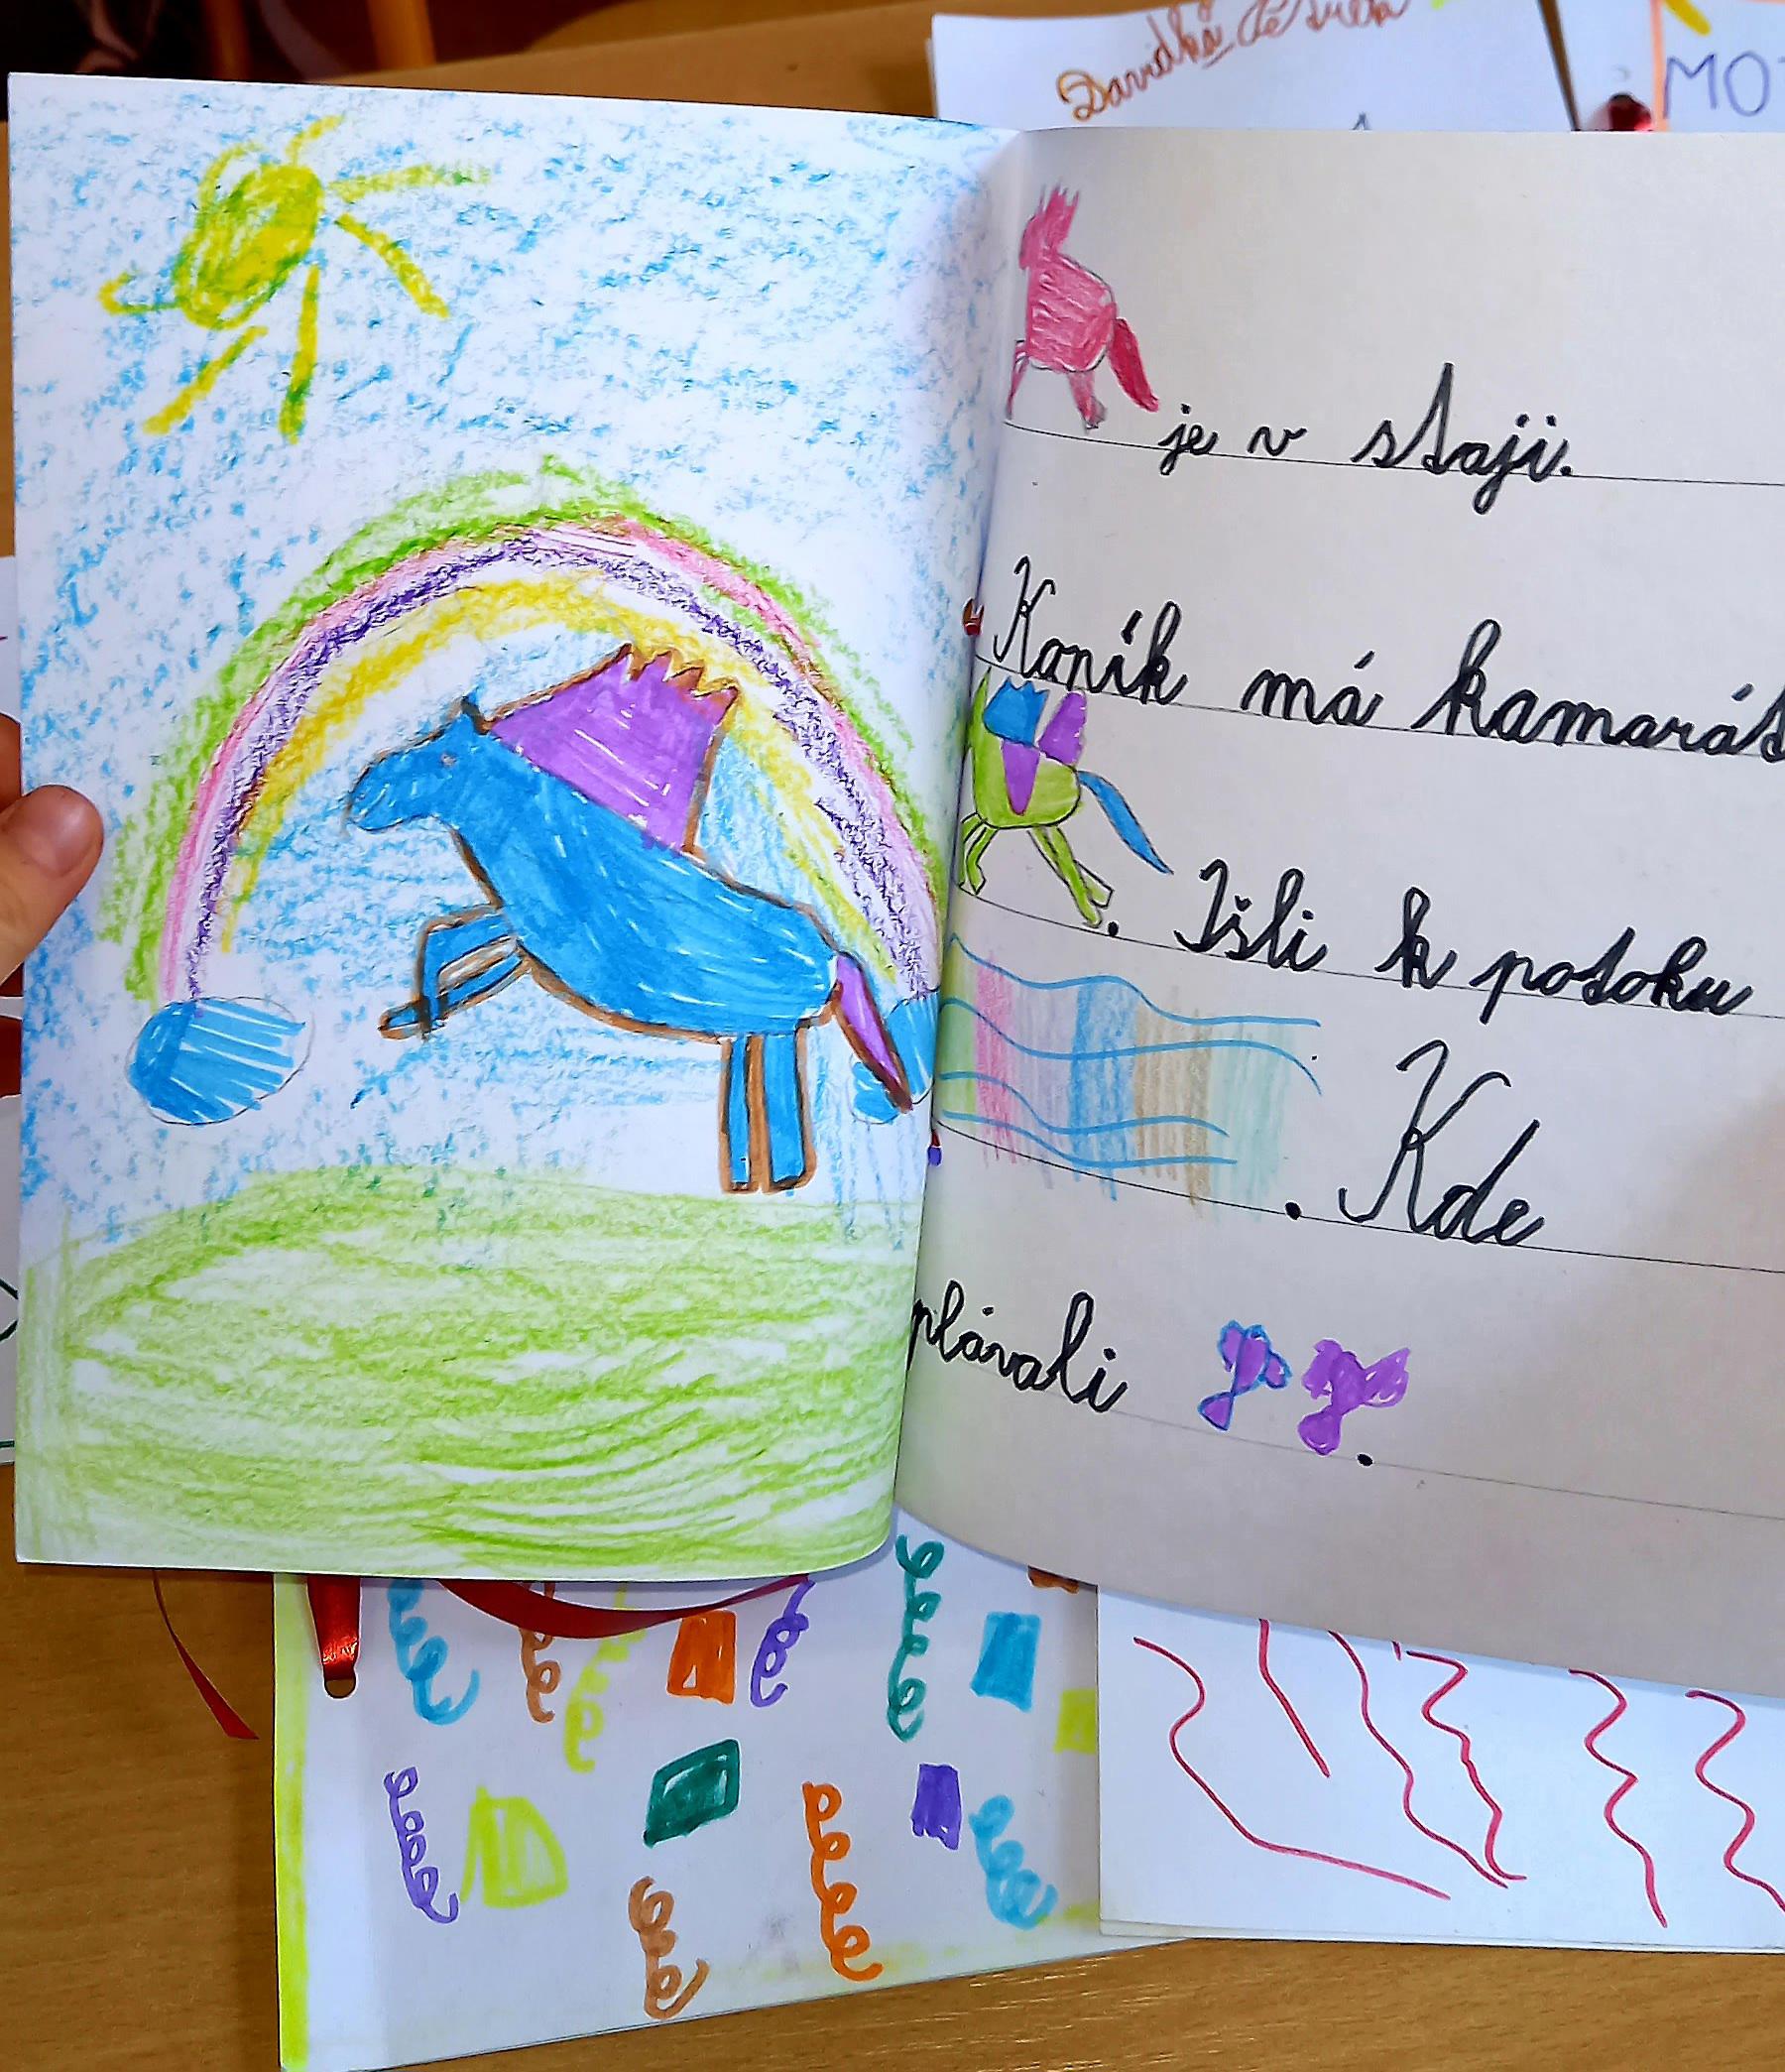 MO
je v staji.
Koník má kamarát
. Išli k potoku
. Kde
plávali
.